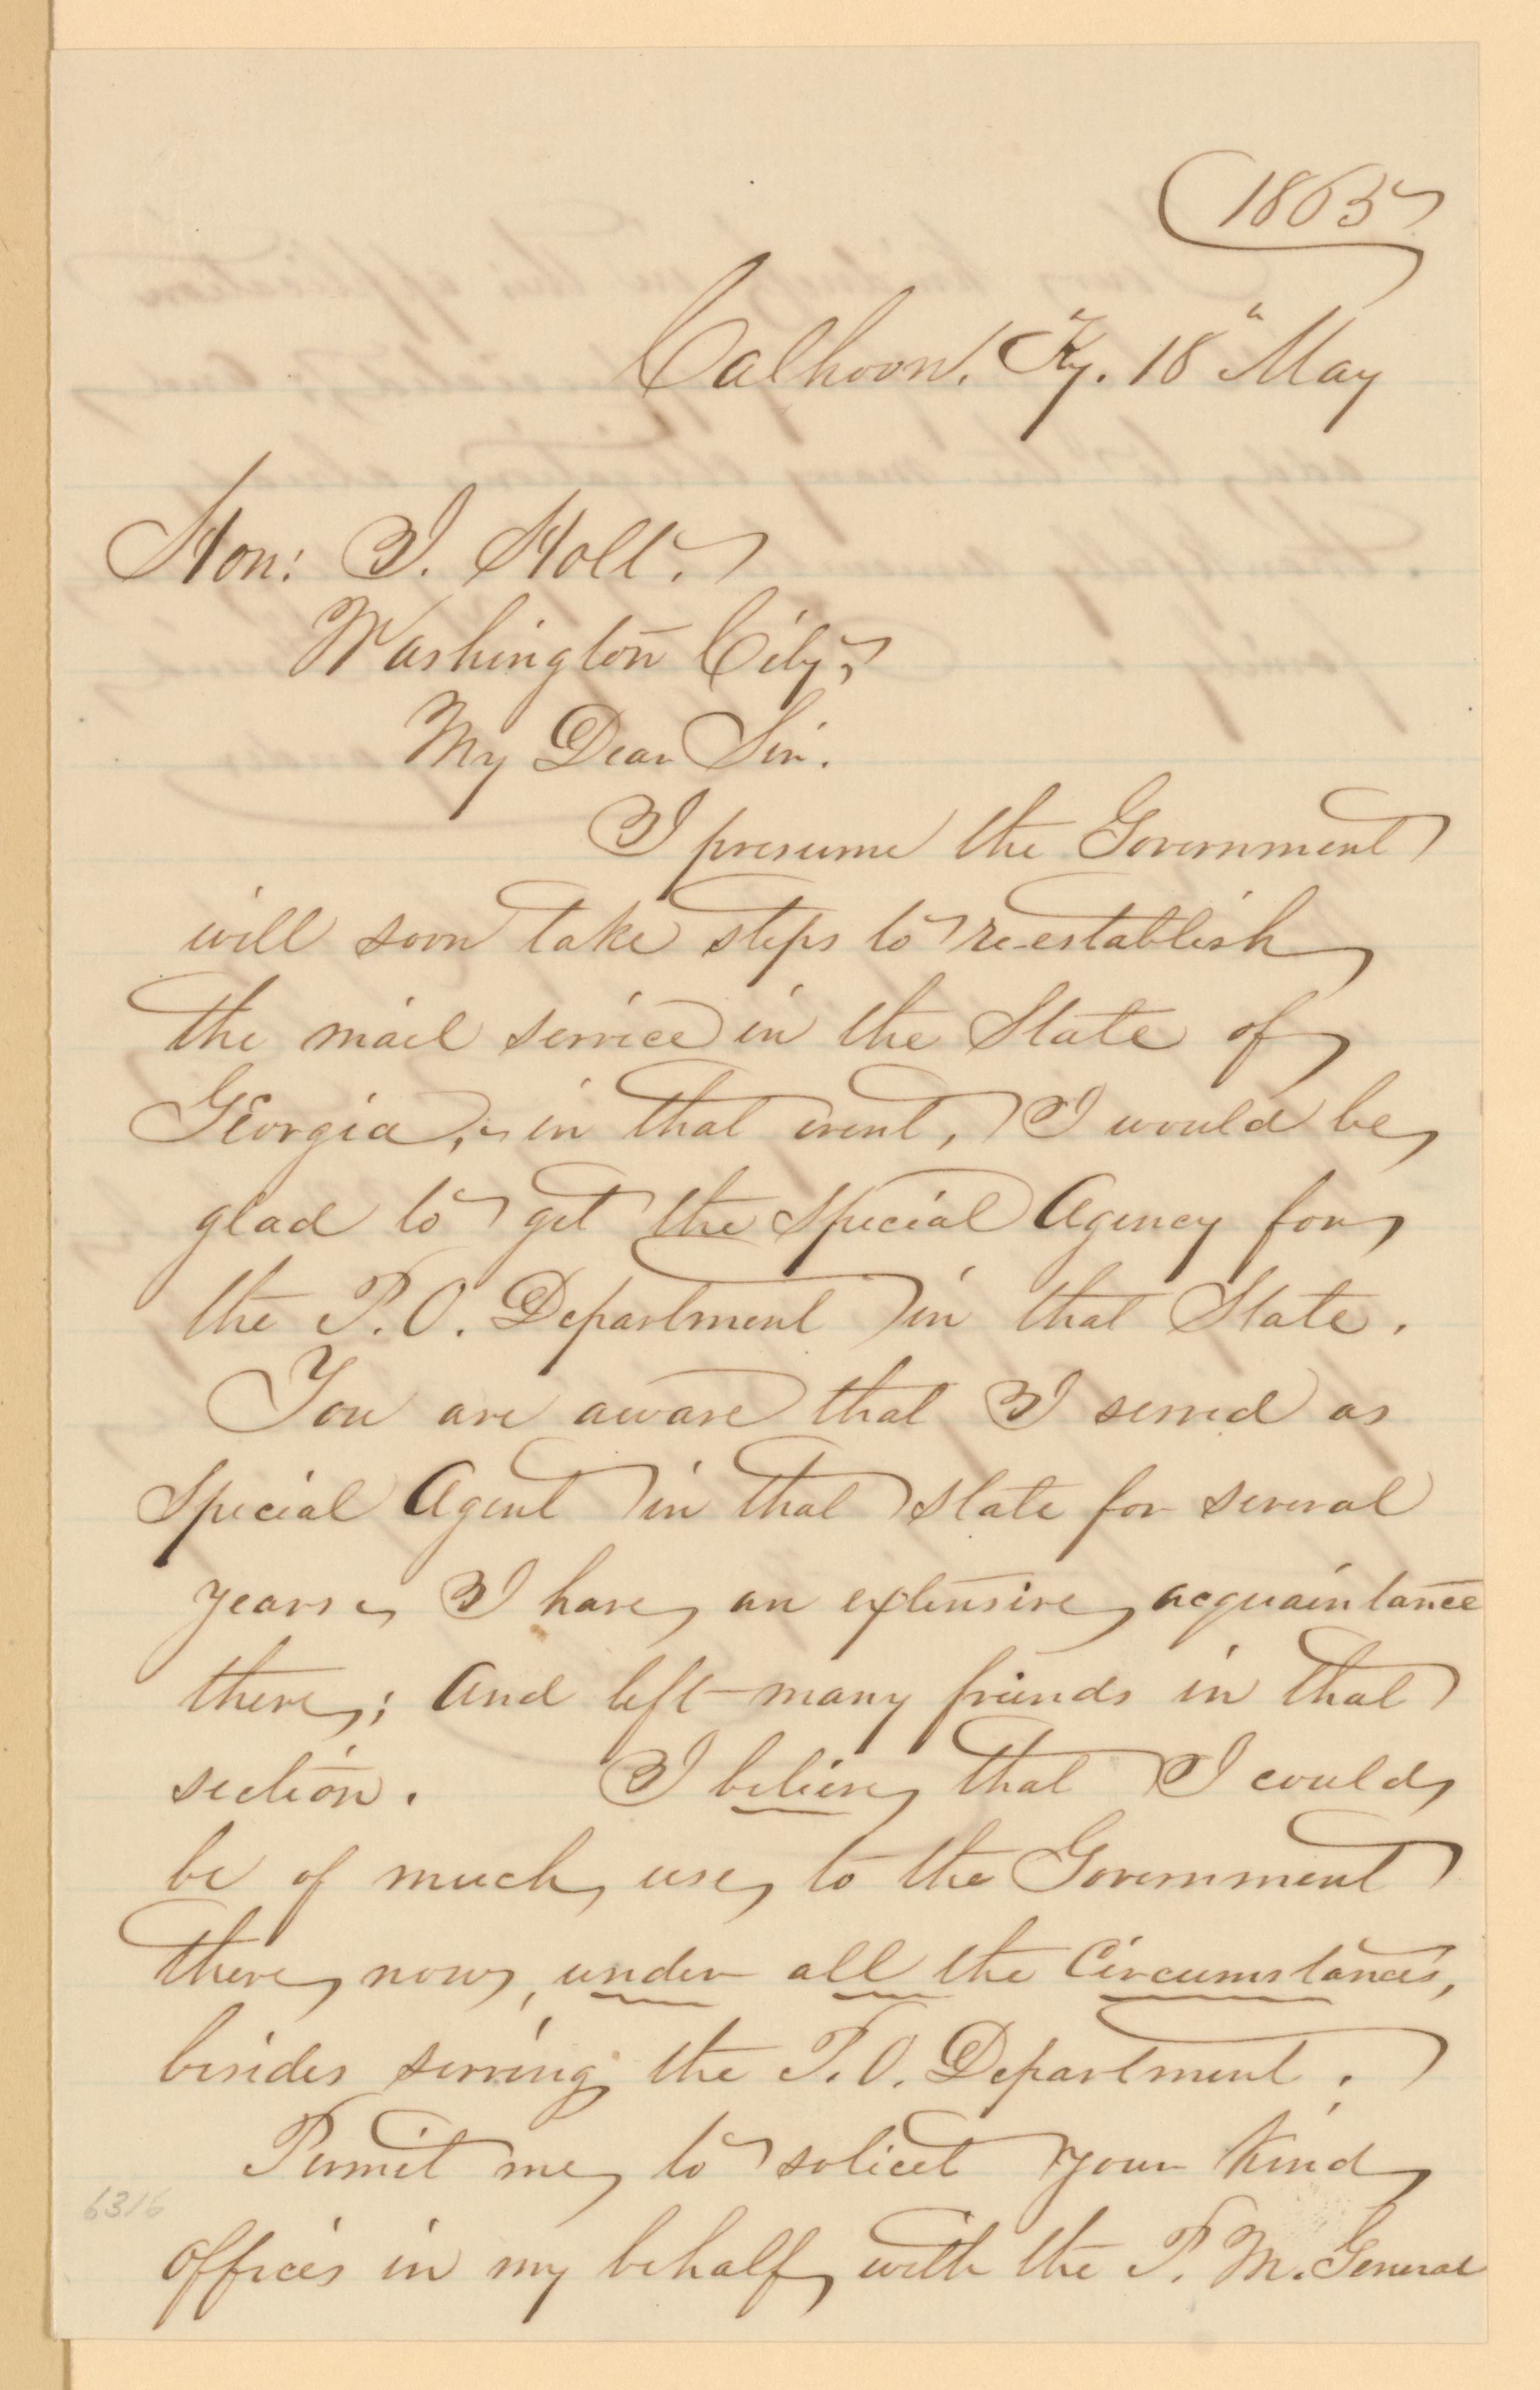 1865
Calhoon, Ky. 18" May
Hon: J. Holt.
Washington City,
My Dear Sir.
I presume the Government
will soon take steps to re-establish
the mail service in the State of
Georgia, & in that event, I would be
glad to get the special Agency for
the P.O. Department in that State.
You are aware that I served as
special Agent in that state for several
years & I have an extensive acquaintance
there; and left many friends in that
section. I believe that I could
be of much use to the Government
there now, under all the circumstances,
besides serving the P.O. Department.
Permit me to solicit your kind
offices in my behalf with the P.M. General
6316